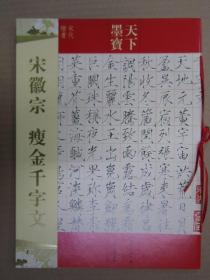 天下
墨寳
宋代
楷書
宋徽宗 瘦金千字文
天地元黄宇宙洪荒日
盈昃辰宿列張寒来暑
秋收冬藏閏餘成歲律
調陽雲騰致雨露結
金生麗水玉出崑岡
巨闕珠稱夜光果珎李
菜重芥薑海鹹河淡